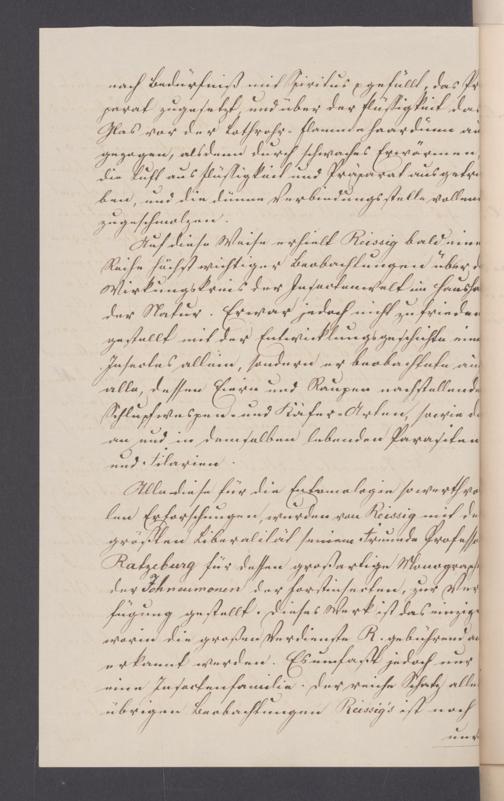 nach Bedürfniß mit Spiritus gefüllt, das Prä
parat zugesetzt, und über der Flüssigkeit das
Glas vor der Lothrohr-Flamme haardünn au
gezogen, alsdann durch schwaches Erwärmen,
die Luft aus Flüssigkeit und Präparat ausgetrie
ben, und die dünne Verbindungsstelle vollends
zugeschmolzen.
Auf diese Weise erhielt Reissig bald eine
Reihe höchst wichtiger Beobachtungen über d
Wirkungskreis der Insectenwelt im Hausha
der Natur. Er war jedoch nicht zufrieden
gestellt mit der Entwicklungsgeschichte eine
Insectes allein, sondern er beobachtete au
alle, dessen Eiern und Raupen nachstellende
Schlupfwespen- und Käfer-Arten, sowie d
an und in demselben lebenden Parasiten
und Filarien.
Alle diese für die Entomologie so werthvo
len Erforschungen, wurden von Reissig mit de
größten Liberalität seinem Freunde Professo
Ratzeburg für dessen großartige Monograph
der Ichneumonen der Forstinsecten, zur Ver
fügung gestellt. Dieses Werk ist das einzige
worin die großen Verdienste R. gebührend an
erkannt werden. Es umfaßt jedoch nur
eine Insectenfamilie. Der reiche Schatz alle
übrigen Beobachtungen Reissig's ist noch